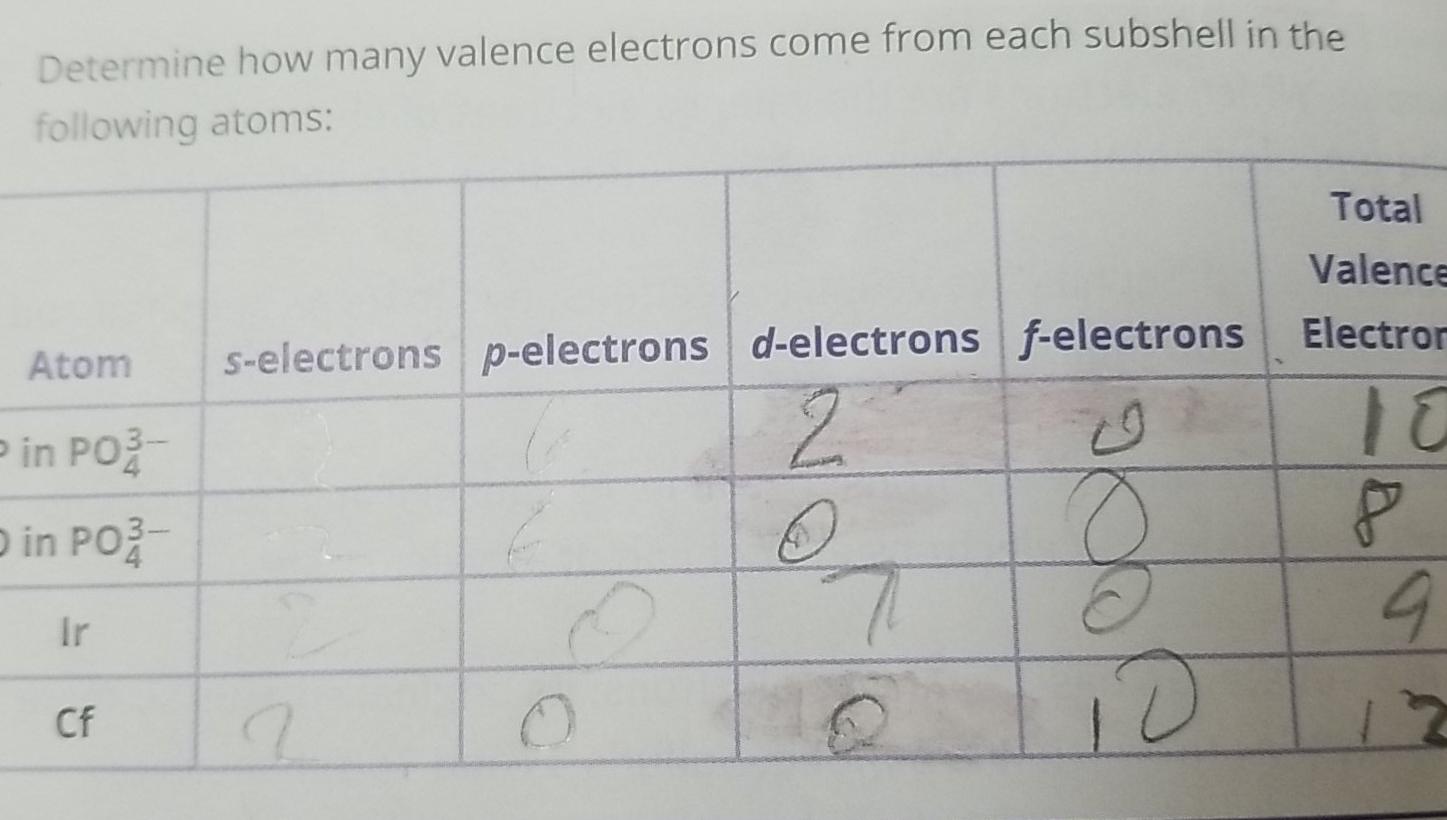 Determine how many valence electrons come from each subshell in the
following atoms:
Atom s-electrons p-electrons d-electrons f-electrons Total Valence Electron
P in PO₄³⁻ 2 6 2 0 10
O in PO₄³⁻ 2 6 0 0 8
Ir 2 0 7 0 9
Cf 2 0 0 10 12